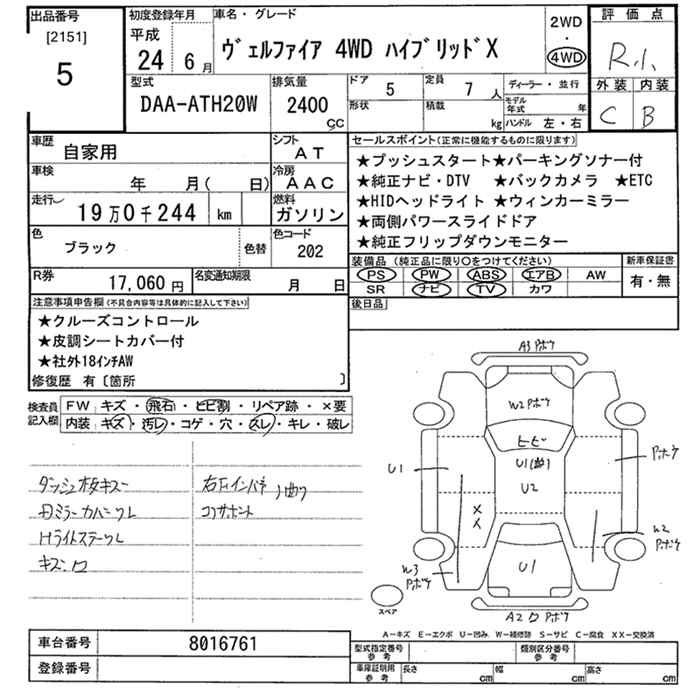 出品番号
[2151]
5
初度登録年月
平成
24 6月
車名・グレード
ヴェルファイア 4WD ハイブリッドX
2WD
・
4WD
評価点
外装 内装
C B
型式
DAA-ATH20W
排気量
2400
CC
ドア 5
定員 7人
形状
積載 kg
ディーラー・並行
モデル年式 年
ハンドル 左・右
車歴
自家用
シフト
AT
車検
年 月( 日)
冷房
AAC
走行
19万0千244 km
燃料
ガソリン
色
ブラック
色替
色コード
202
R券
17,060円
名変通知期限
月 日
セールスポイント(正常に機能するものに限ります)
★プッシュスタート★パーキングソナー付
★純正ナビ・DTV ★バックカメラ ★ETC
★HIDヘッドライト★ウィンカーミラー
★両側パワースライドドア
★純正フリップダウンモニター
装備品 (純正品に限り○をつけてください)
PS PW ABS エアB AW
SR ナビ TV カワ
新車保証書
有・無
後日品
注意事項申告欄(不具合内容等は具体的に記入して下さい)
★クルーズコントロール
★皮調シートカバー付
★社外18インチAW
修復歴 有〔箇所 〕
検査員
記入欄
FW キズ・飛石・ヒビ割・リペア跡・×要
内装・キズ・汚レ・コゲ・穴・スレ・キレ・破レ
A3 Pボウ
W2 Pボウ
ヒビ
U1
U2
U1
Pボウ
W2
Pボウ
W3
Pボウ
スペア
A-キズ E-エクボ U-凹み W-補修跡 S-サビ C-腐食 XX-交換済
車台番号
8016761
登録番号
型式指定番号
参考
類別区分番号
参考
車庫証明用
参考
長さ cm
幅 cm
高さ cm